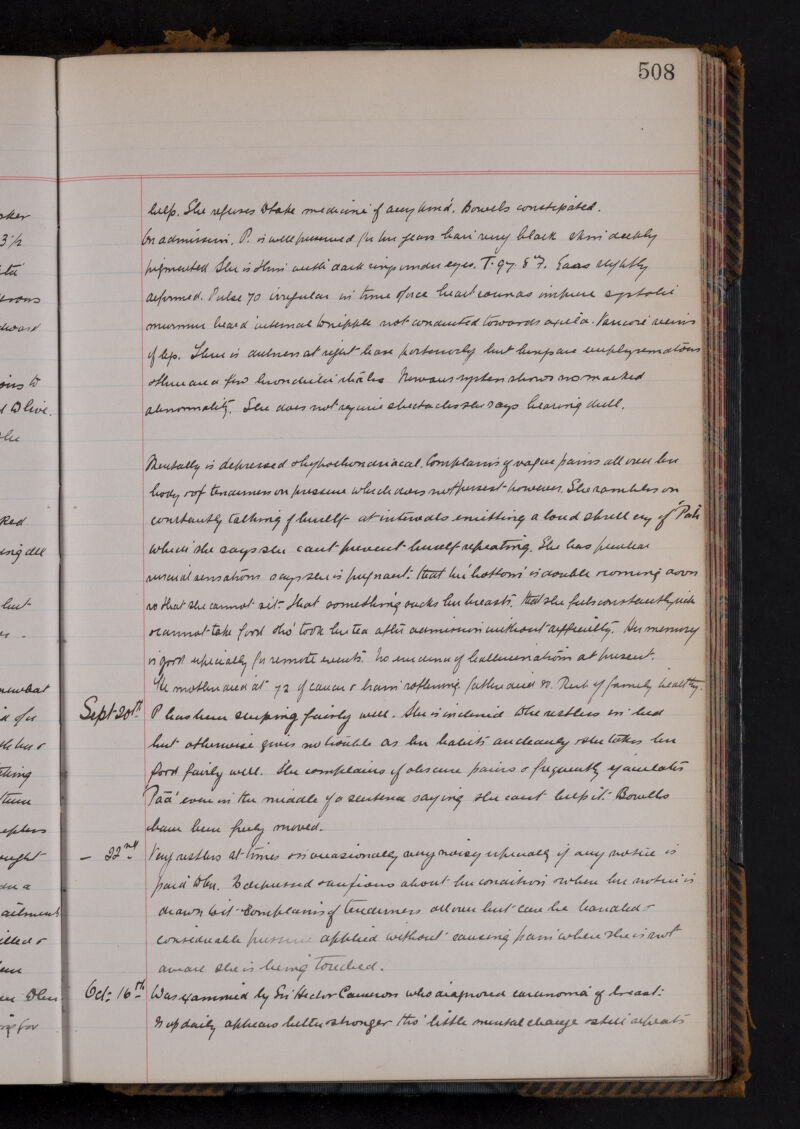 508
help. She refuses to take medicine of any kind. Bowels constipated.
On admission. P. is well preserved for her years hair very black skin deeply
pigmented She is thin with dark rings under eyes. T. 97. 8°F. Ears slightly
deformed. Pulse 70 irregular in time & force heart sounds impure systolic
murmur heard internal to nipple not conducted towards axilla. Varicose veins
of legs. There is dulness at right base posteriorly but lungs are emphysematous
& there are a few bronchitic râles. Nervous system shows no marked
abnormality. She does not require spectacles she says hearing dull.
Mentally is depressed & hypochondriacal. Complains of vague pains all over her
body & of tenderness on pressure which does not persist however. She rambles on
constantly talking of herself at intervals emitting a loud shrill cry of "Pah
which she says she cant prevent herself repeating. She has peculiar
visceral sensations says she is pregnant. that her 'bottom' is double & coming down
so that she cannot sit - that something sucks her breasts. that she feels constantly sick
& cannot take food tho' took her tea after admission without difficulty. Her memory
is good especially for remote events. No evidence of hallucinations at present.
mother died at 72 of cancer & brain softening father died Rest of family healthy.
Sept. 20th P has been sleeping fairly well. She is inclined to be restless in bed
but otherwise gives no trouble as her habits are cleanly & she takes her
food fairly well. She complains of obscure pains & frequently ejaculates
'Paā' even in the middle of a sentence saying she cant help it. Bowels
have been freely moved.
— 22nd Very restless at times & is occasionally very noisy especially if any notice is
paid to her. Is depressed & anxious about her condition when her notice is
drawn to it. Complains of tenderness all over but can be handled &
considerable pressure applied without causing pain when she is not
aware she is being touched.
Oct. 16th Was examined by Sir Hector Cameron who diagnosed carcinoma of breast.
Is up daily appears better & stronger tho' little mental change & still repeats